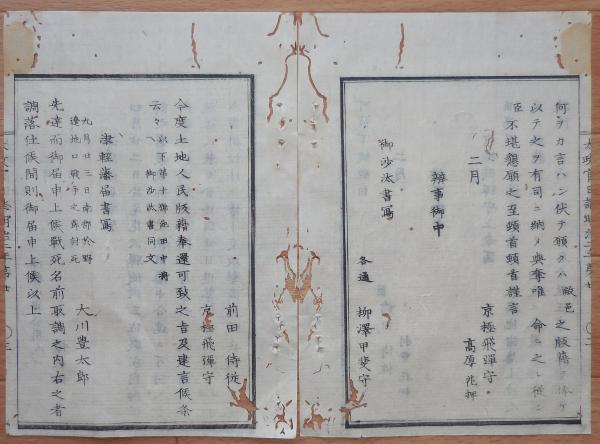 何ヲカ言ハン伏テ願クハ敝邑之版籍ヲ
以テ之ヲ有司ニ納メ與奪唯命之レ従ン
臣不堪懇願之至頓首頓首謹言
京極飛彈守
高厚花押
二月
辨事御中
御沙汰書寫
各通 柳澤甲斐守
前田 侍従
京極飛彈守
今度土地人民版籍奉還可致之旨及建言候条
云々以下第十 池田中将
ヘ御沙汰書同文
津軽藩届書寫
九月廿三日南部於野
邊地口戦争之節討死
大川豊太郎
先達而御届申上候戦死名前取調之内右之者
調落仕候間則御届申上候以上